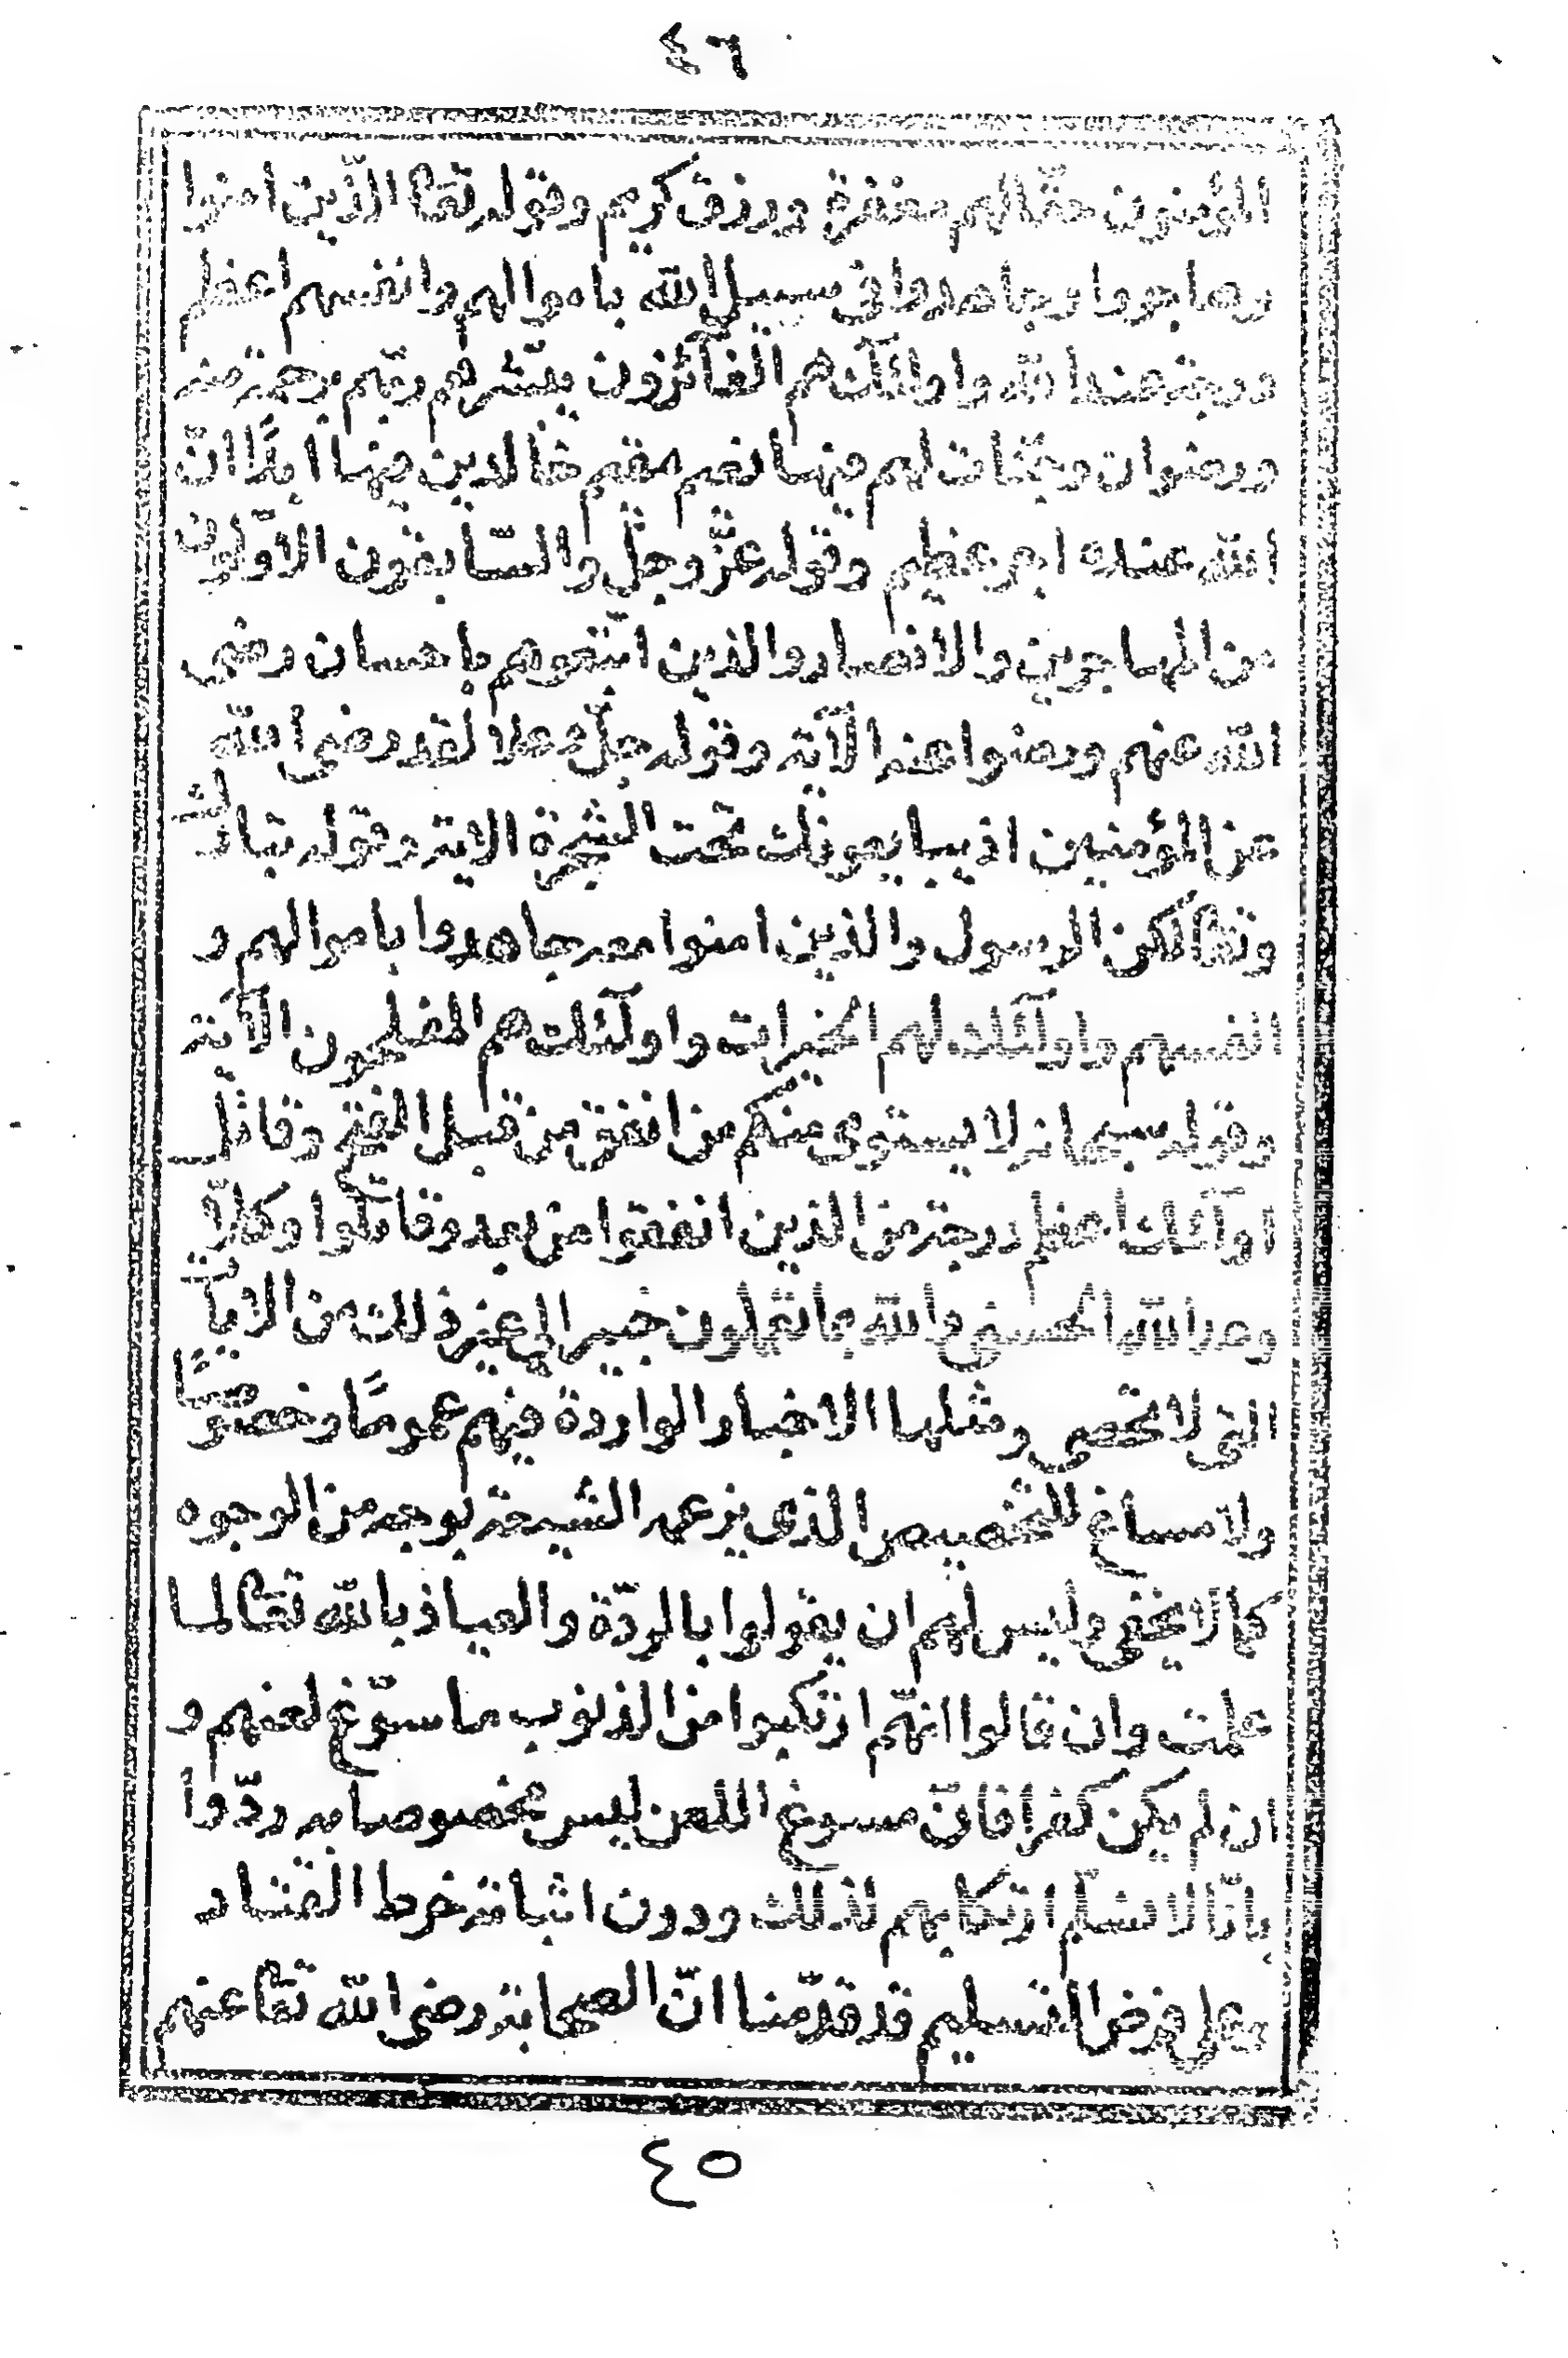 ٤٦
المؤمنون حقّا لهم مغفرة ورزق كريم وقوله تعا الذّين امنوا
وهاجروا وجاهدوا فى سبيل الله باموالهم وانفسهم اعظم
درجة عند الله واولئك هم الفآئزون يبشّرهم ربّهم برحمة منه
ورضوان وجنّات لهم فيها نعيم مقيم خالدين فيها ابدًا انّ
الله عنده اجر عظيم وقوله عزّ وجلّ والسّابقون الاوّلون
من المهاجرين والانصار والذين اتّبعوهم باحسان رضى
الله عنهم ورضوا عنه الآية وقوله جلّ وعلا لقد رضى الله
عن المؤمنين اذ يبايعونك تحت الشجرة الاية وقوله تبارك
وتعا لكن الرسول والذين امنوا معه جاهدوا باموالهم و
انفسهم واولٓئك لهم الخيرات واولٓئك هم المفلحون الآية
وقوله سبحانه لا يستوى منكم من انفق من قبل الفتح وقاتل
اولٓئك اعظم درجة من الذين انفقوا من بعد وقاتلوا وكلاًّ
وعد الله الحسنى والله بما تعملون خبير الى غير ذلك من الايات
التى لا تحصى ومثلها الاخبار الواردة فيهم عمومًا وخصوصًا
ولا مساغ للتخصيص الذى يزعمه الشيعة بوجه من الوجوه
كما لا يخفى وليس لهم ان يقولوا بالردّة والعياذ بالله تعا لما
علمت وان قالوا انهّم ارتكبوا من الذنوب ما سوّغ لعنهم و
ان لم يكن كفرا فانّ مسوغ اللعن ليس مخصوصا به ردّوا
بانّا لا نسلّم ارتكابهم لذلك ودون اثباته خرط القتاد
وعلى فرض التسليم قد قدّمنا انّ الصحابة رضى الله تعا عنهم
٤٥